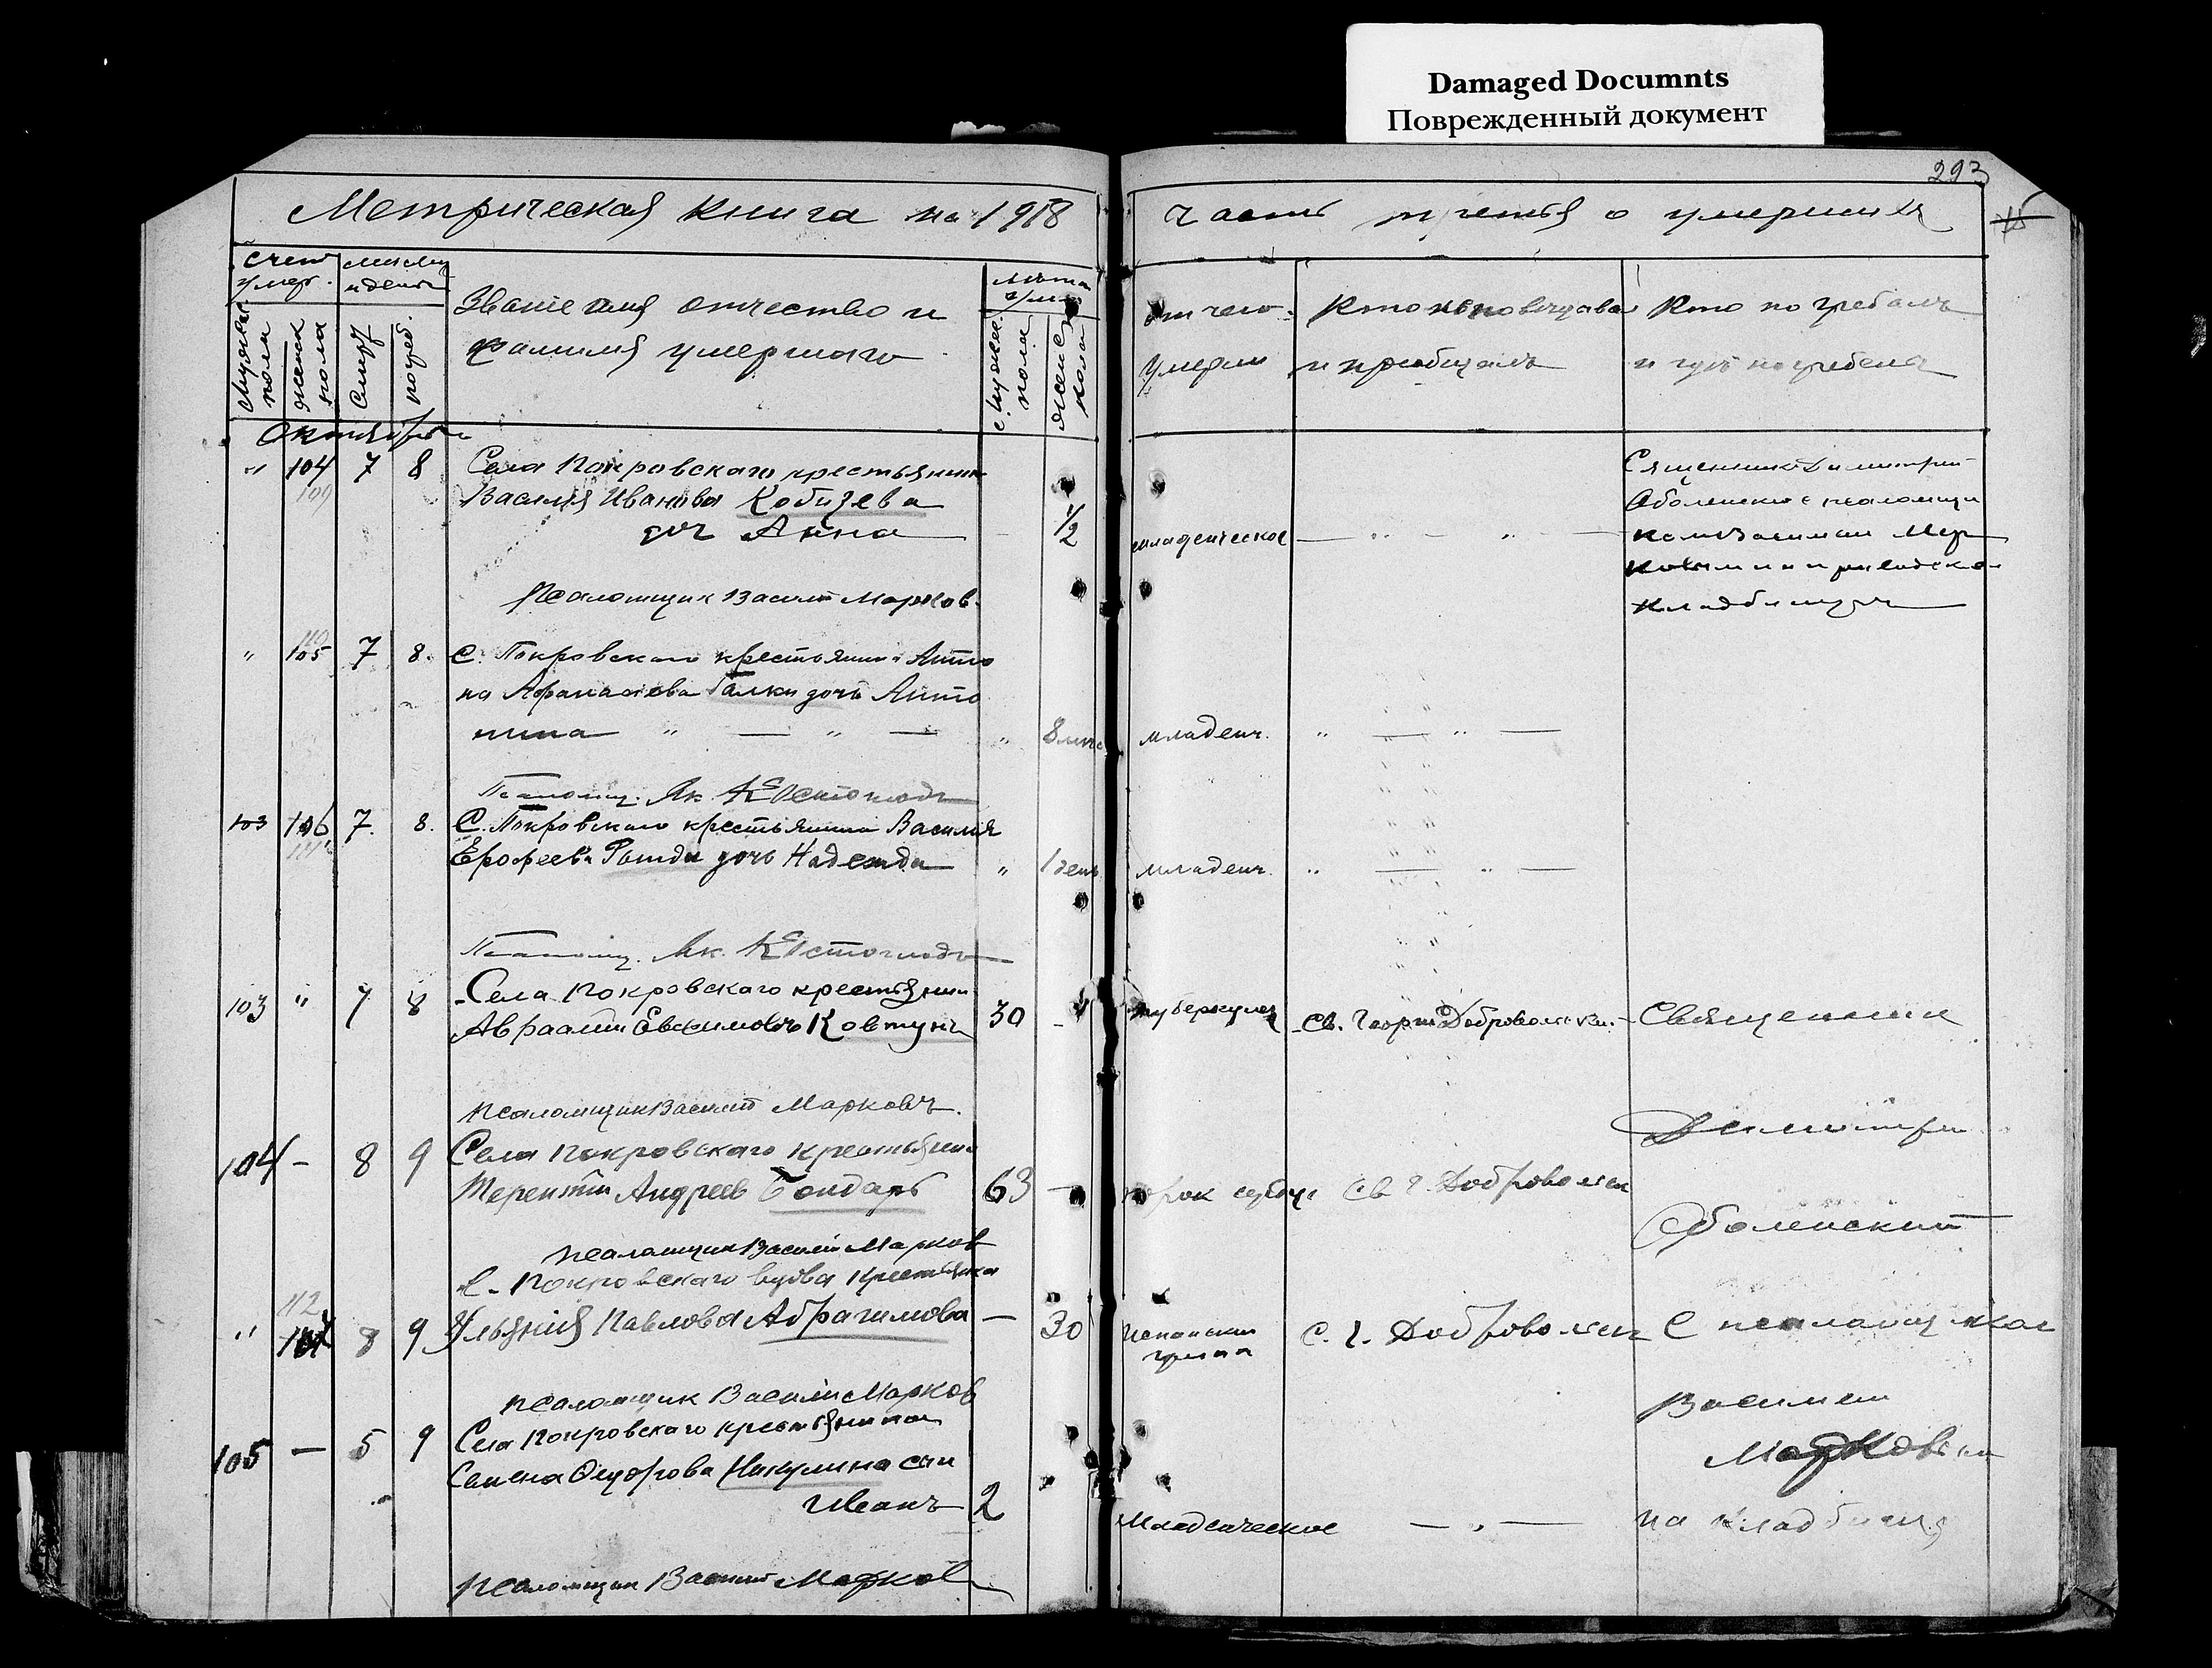 Damaged Documnts
Поврежденный документ
293
Метрическая книга на 1918
часть третья о умерших
счет умер.
месяц и день
Звание имя отчество и
фамилия умершаго
лета
Мужеск. пола
женск пола
Смерт
погреб.
Мужеск. пола
женск пола
от чего
умерли
Кто исповедовал
и приобщалъ
Кто погребалъ
и где погребены
Октябрь
" 104 7 8 Села Покровскаго крестьянина
109
Василия Иванова Кобизева
доч Анна
1/2
младенческое — " — " —
Священник Димитрий
Оболенский с псаломщи
ком Василием Мар
ковым на приходском
кладбищу
Псаломщик Василий Марков
110
" 105 7 8. С. Покровскаго крестьянина Анто
на Афанасьева Галки дочь Анто
нина " — " — " 8 мес
младенч. " — " —
Псаломщ. Як.
103 106 7. 8. С. Покровскаго крестьянина Василия
111
Ерофеева дочь Надежда " 1 день
младенч. " — " —
Псаломщ. Як.
103 " 7 8 Села Покровскаго крестьянин
Авраамий Евфимовъ Ковтунъ 30 -
туберкулез
Св. Георгий Добровольский
Священник
Псаломщик Василий Марковъ.
104 — 8 9 Села Покровскаго крестьянин
Терентий Андреев Бондарь 63 —
порок сердца Св. Г. Добровольск
Димитрий
Оболенский
псаломщик Василий Марков
с. Покровскаго вдова крестьянка
112
" 107 8 9 Ульяния Павлова Абрагимова — 30
Испанская
грипа
С. Г. Добровольск
С псаломщиком
Василием
Марковым
на кладбище
псаломщик Василий Марков
105 — 5 9 Села Покровскаго крестьянина
Семена Федорова Никулина сын
Иванъ 2
Младенческое — " —
Псаломщик Василий Марков